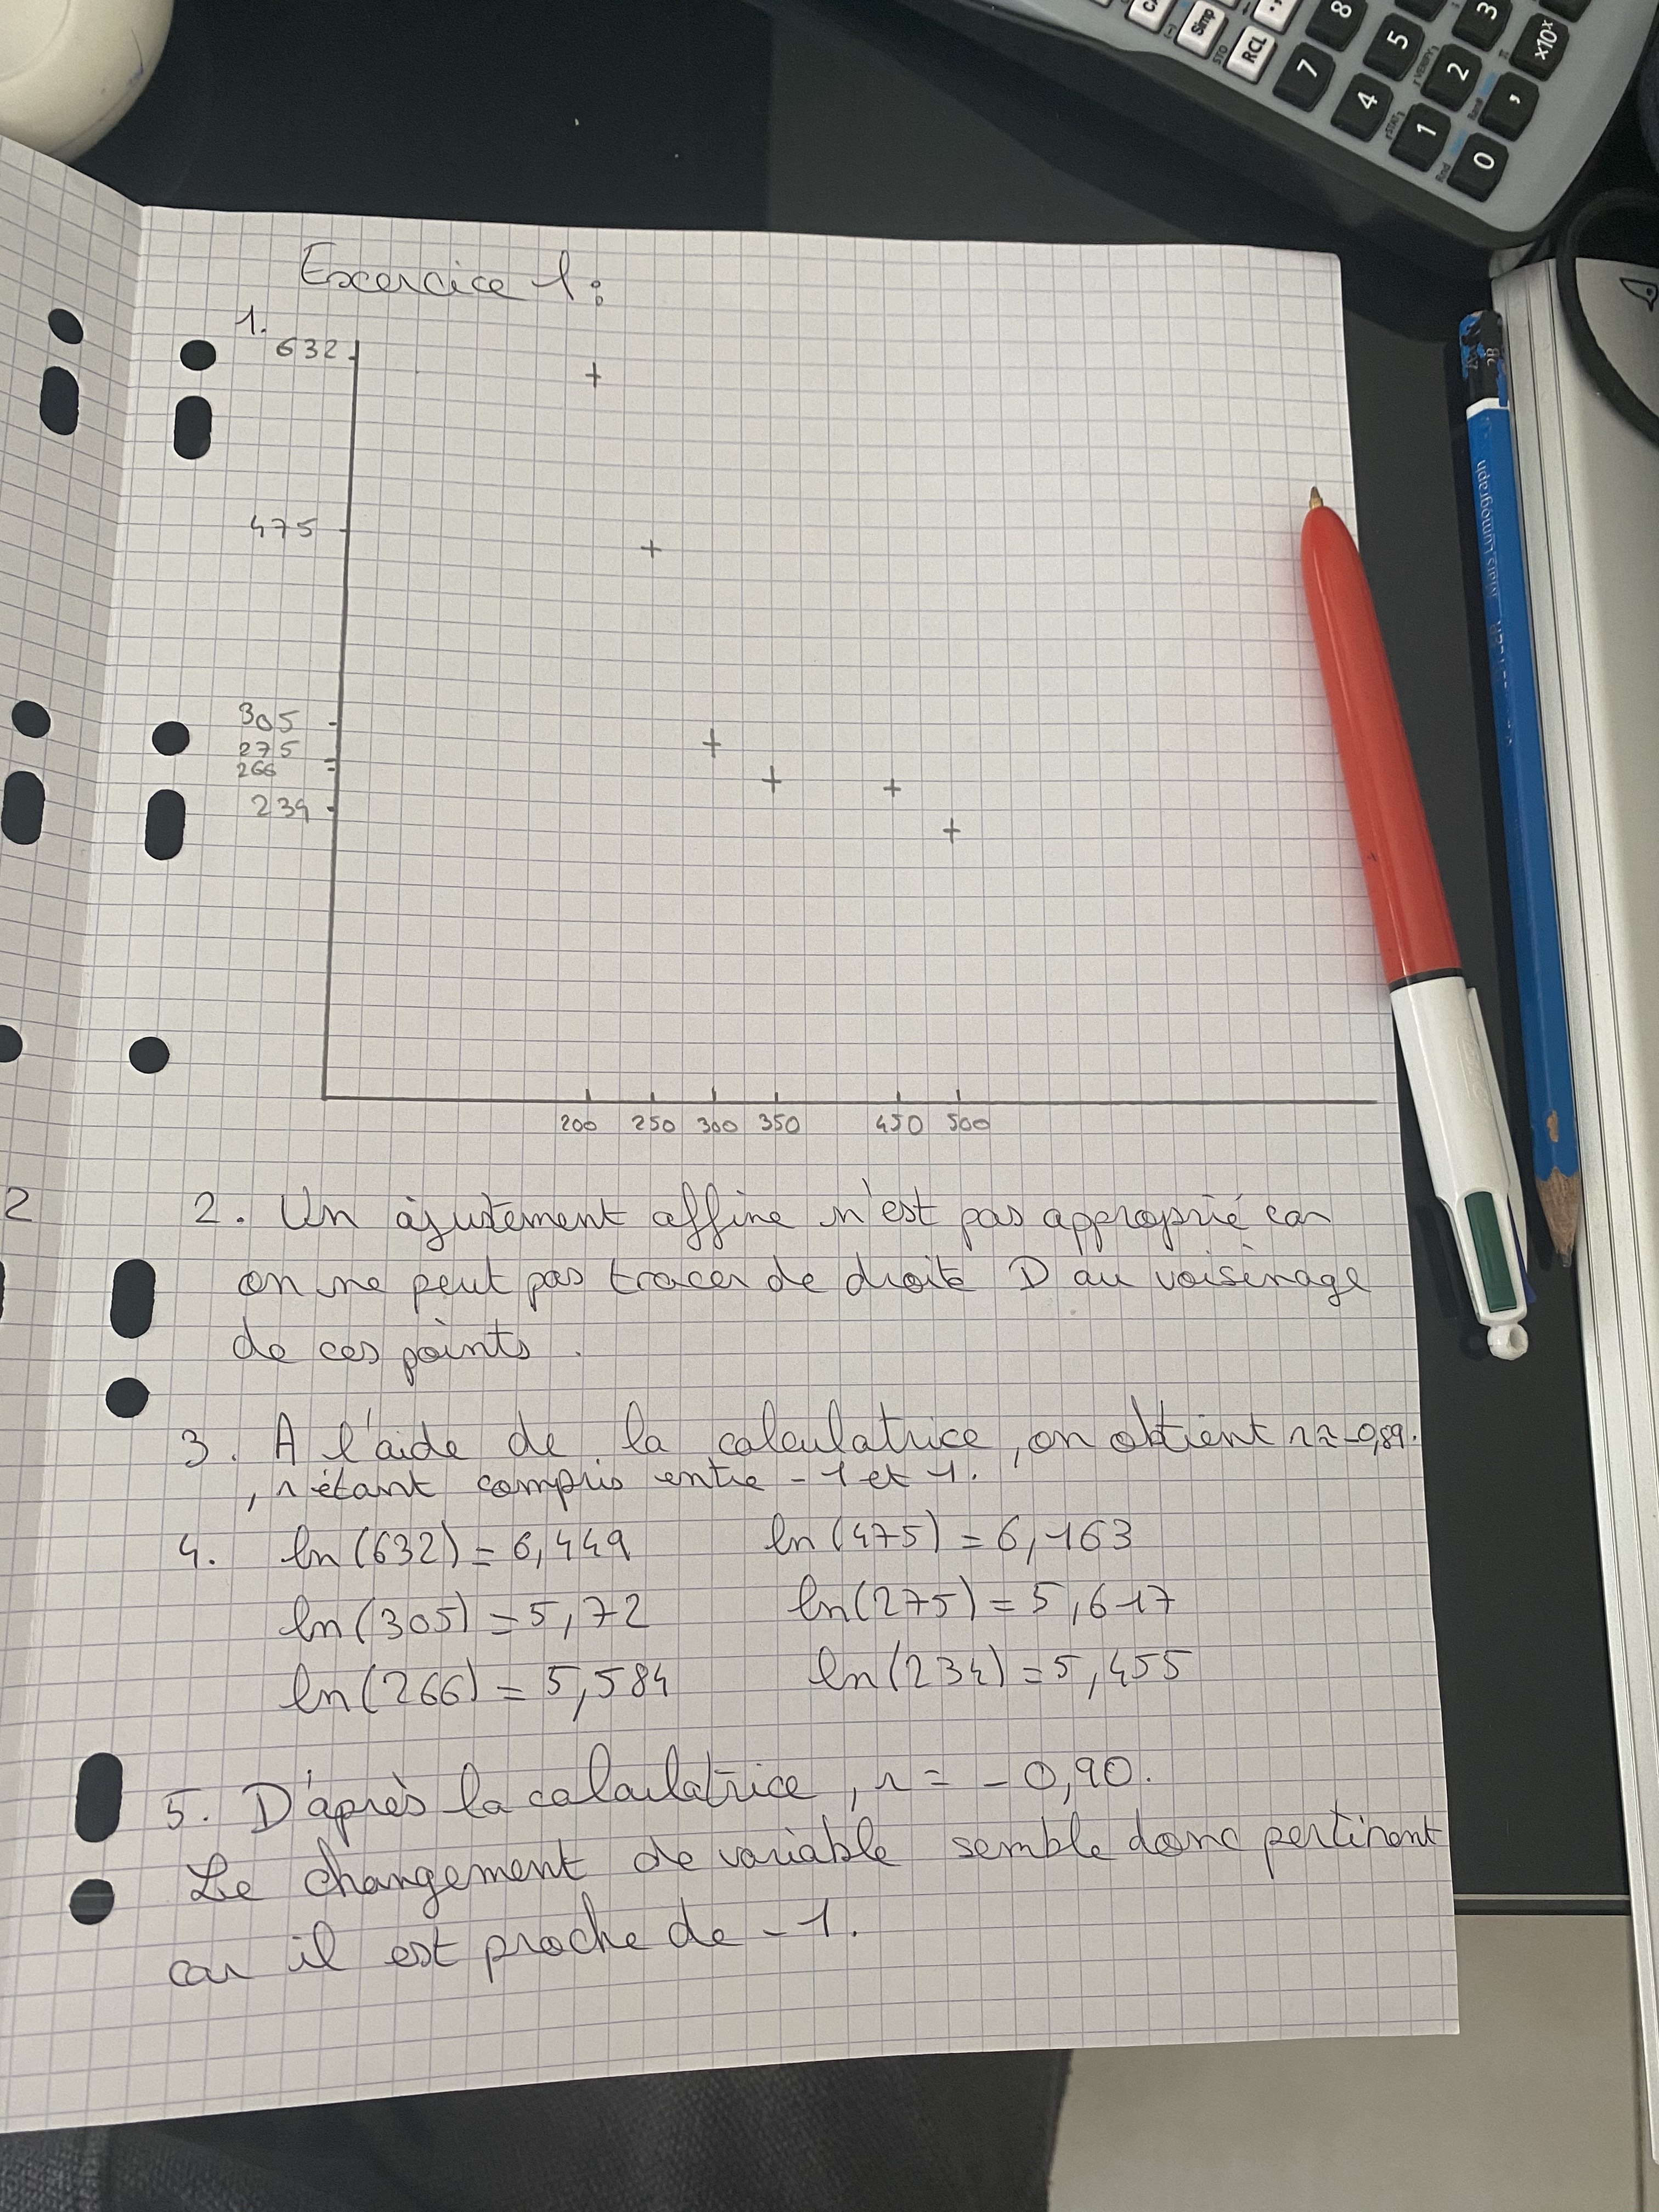 Excercice 1:
1.
632
475
305
275
266
239
200 250 300 350 450 500
2
2. Un ajustement affine n'est pas approprié car
on ne peut pas tracer de droite D au voisinage
de ces points.
3. A l'aide de la calculatrice, on obtient r≈-0,89.
, r étant compris entre -1 et 1.
4. ln(632) = 6,449 ln(475) = 6,163
ln(305) = 5,72 ln(275) = 5,617
ln(266) = 5,584 ln(234) = 5,455
5. D'après la calculatrice, r = -0,90.
Le changement de variable semble donc pertinent
car il est proche de -1.
Simp
STO
RCL
7 8
4 5 3
1 2 ×10ˣ
0 ,
[VERIFY]
[STAT]
Rnd
Ran#
2B
Mars Lumograph